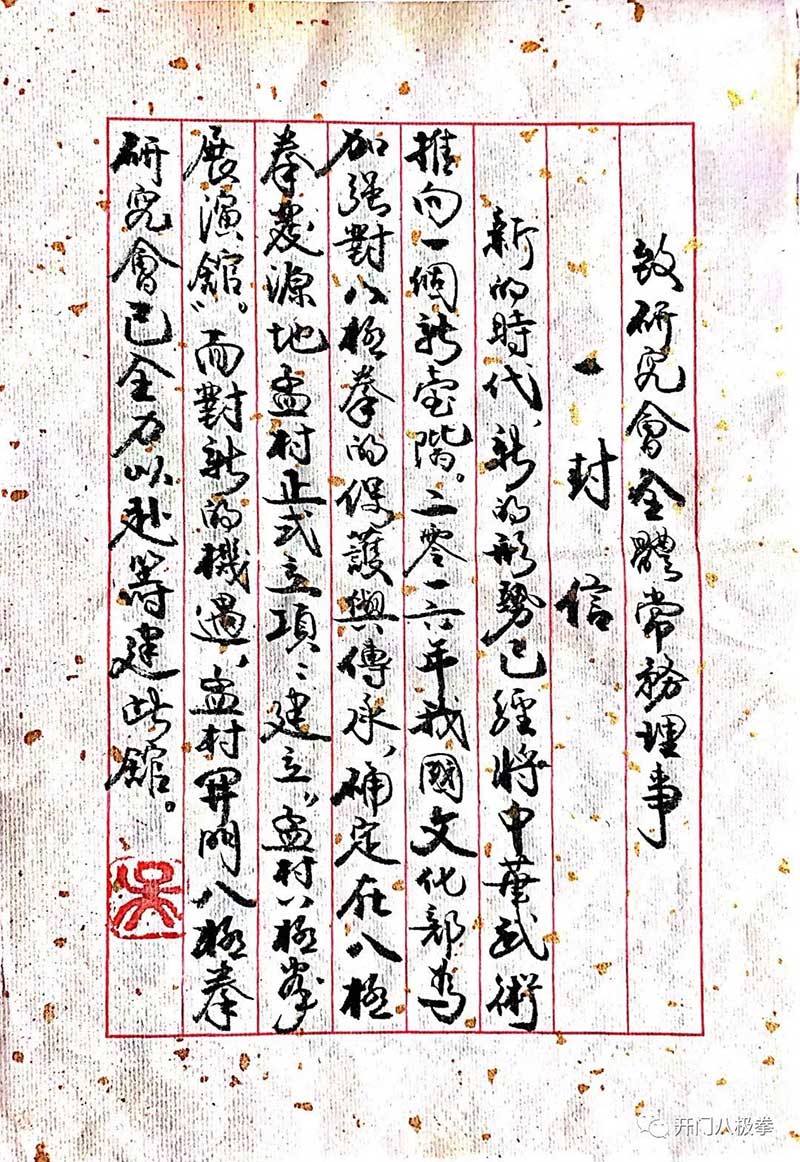 致研究會全體常務理事
一封信
新的時代、新的形勢已經將中華武術
推向一個新臺階。二零一六年我國文化部爲
加强對八極拳的保護與傳承、确定在八極
拳發源地孟村正式立項、建立“孟村八極拳
展演館”。而對新的機遇、孟村開門八極拳
研究會已全力以赴籌建此館。
吴
开门八极拳